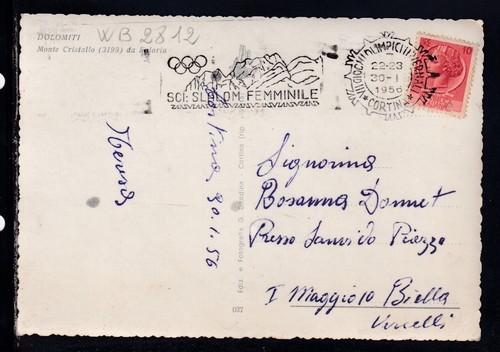 WB 2812
DOLOMITI
Monte Cristallo (3199) da Faloria
SCI: SLALOM FEMMINILE
VII GIOCHI OLIMPICI INVERNALI
22-23
30-1
1956
CORTINA
10
Cortina 30.1.56
Signorina
Rosanna Donnet
Presso Sanvido Piazza
I Maggio 10 Biella
Vercelli
Ediz. e Fotografia G. Ghedina - Cortina
027